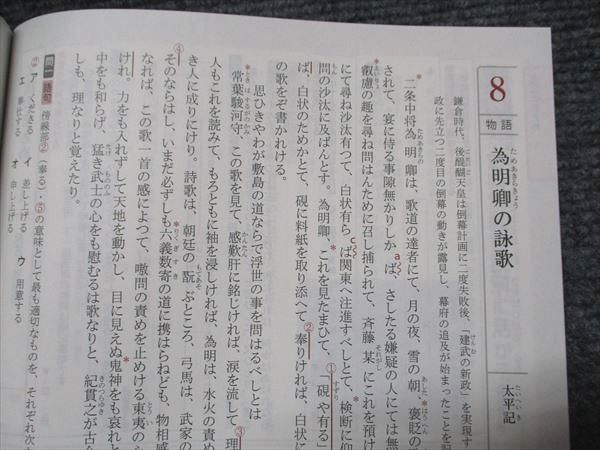 8
物語
為明卿の詠歌
ためあきらきょう
太平記
たいへいき
鎌倉時代、後醍醐天皇は倒幕計画に二度失敗後、「建武の新政」を実現す
政に先立つ二度目の倒幕の動きが露見し、幕府の追及が始まったことを記
二条中将為明卿は、歌道の達者にて、月の夜、雪の朝、褒貶の
されて、宴に侍る事隙無かりしかば、さしたる嫌疑の人にては無
叡慮の趣を尋ね問はんために召し捕られて、斉藤某にこれを預け
にて尋ね沙汰有つて、白状有らば関東へ注進すべしとて、検断に仰
問の沙汰に及ばんとす。為明卿、これを見たまひて、「硯や有る」
ば、白状のためかとて、硯に料紙を取り添へて、奉りければ、白状に
の歌をぞ書かれける。
思ひきやわが敷島の道ならで浮世の事を問はるべしとは
常葉駿河守、この歌を見て、感歎肝に銘じければ、涙を流して理
人もこれを読みて、もろともに袖を浸しければ、為明は、水火の責め
き人に成りにけり。詩歌は、朝廷の翫ぶところ、弓馬は、武家の
そのならはし、いまだ必ずしも六義数寄の道に携はらねども、物相感
なれば、この歌一首の感によつて、嗷問の責めを止めける東夷の
けれ。力をも入れずして天地を動かし、目に見えぬ鬼神をも哀れと
中をも和らげ、猛き武士の心をも慰むるは歌なりと、紀貫之が古
しも、理なりと覚えたり。
問一 語句 傍線部②（奉る）・⑤の意味として最も適切なものを、それぞれ次
② ア くださる イ 差し上げる ウ 用意する
エ 奉仕する オ 申し上げる